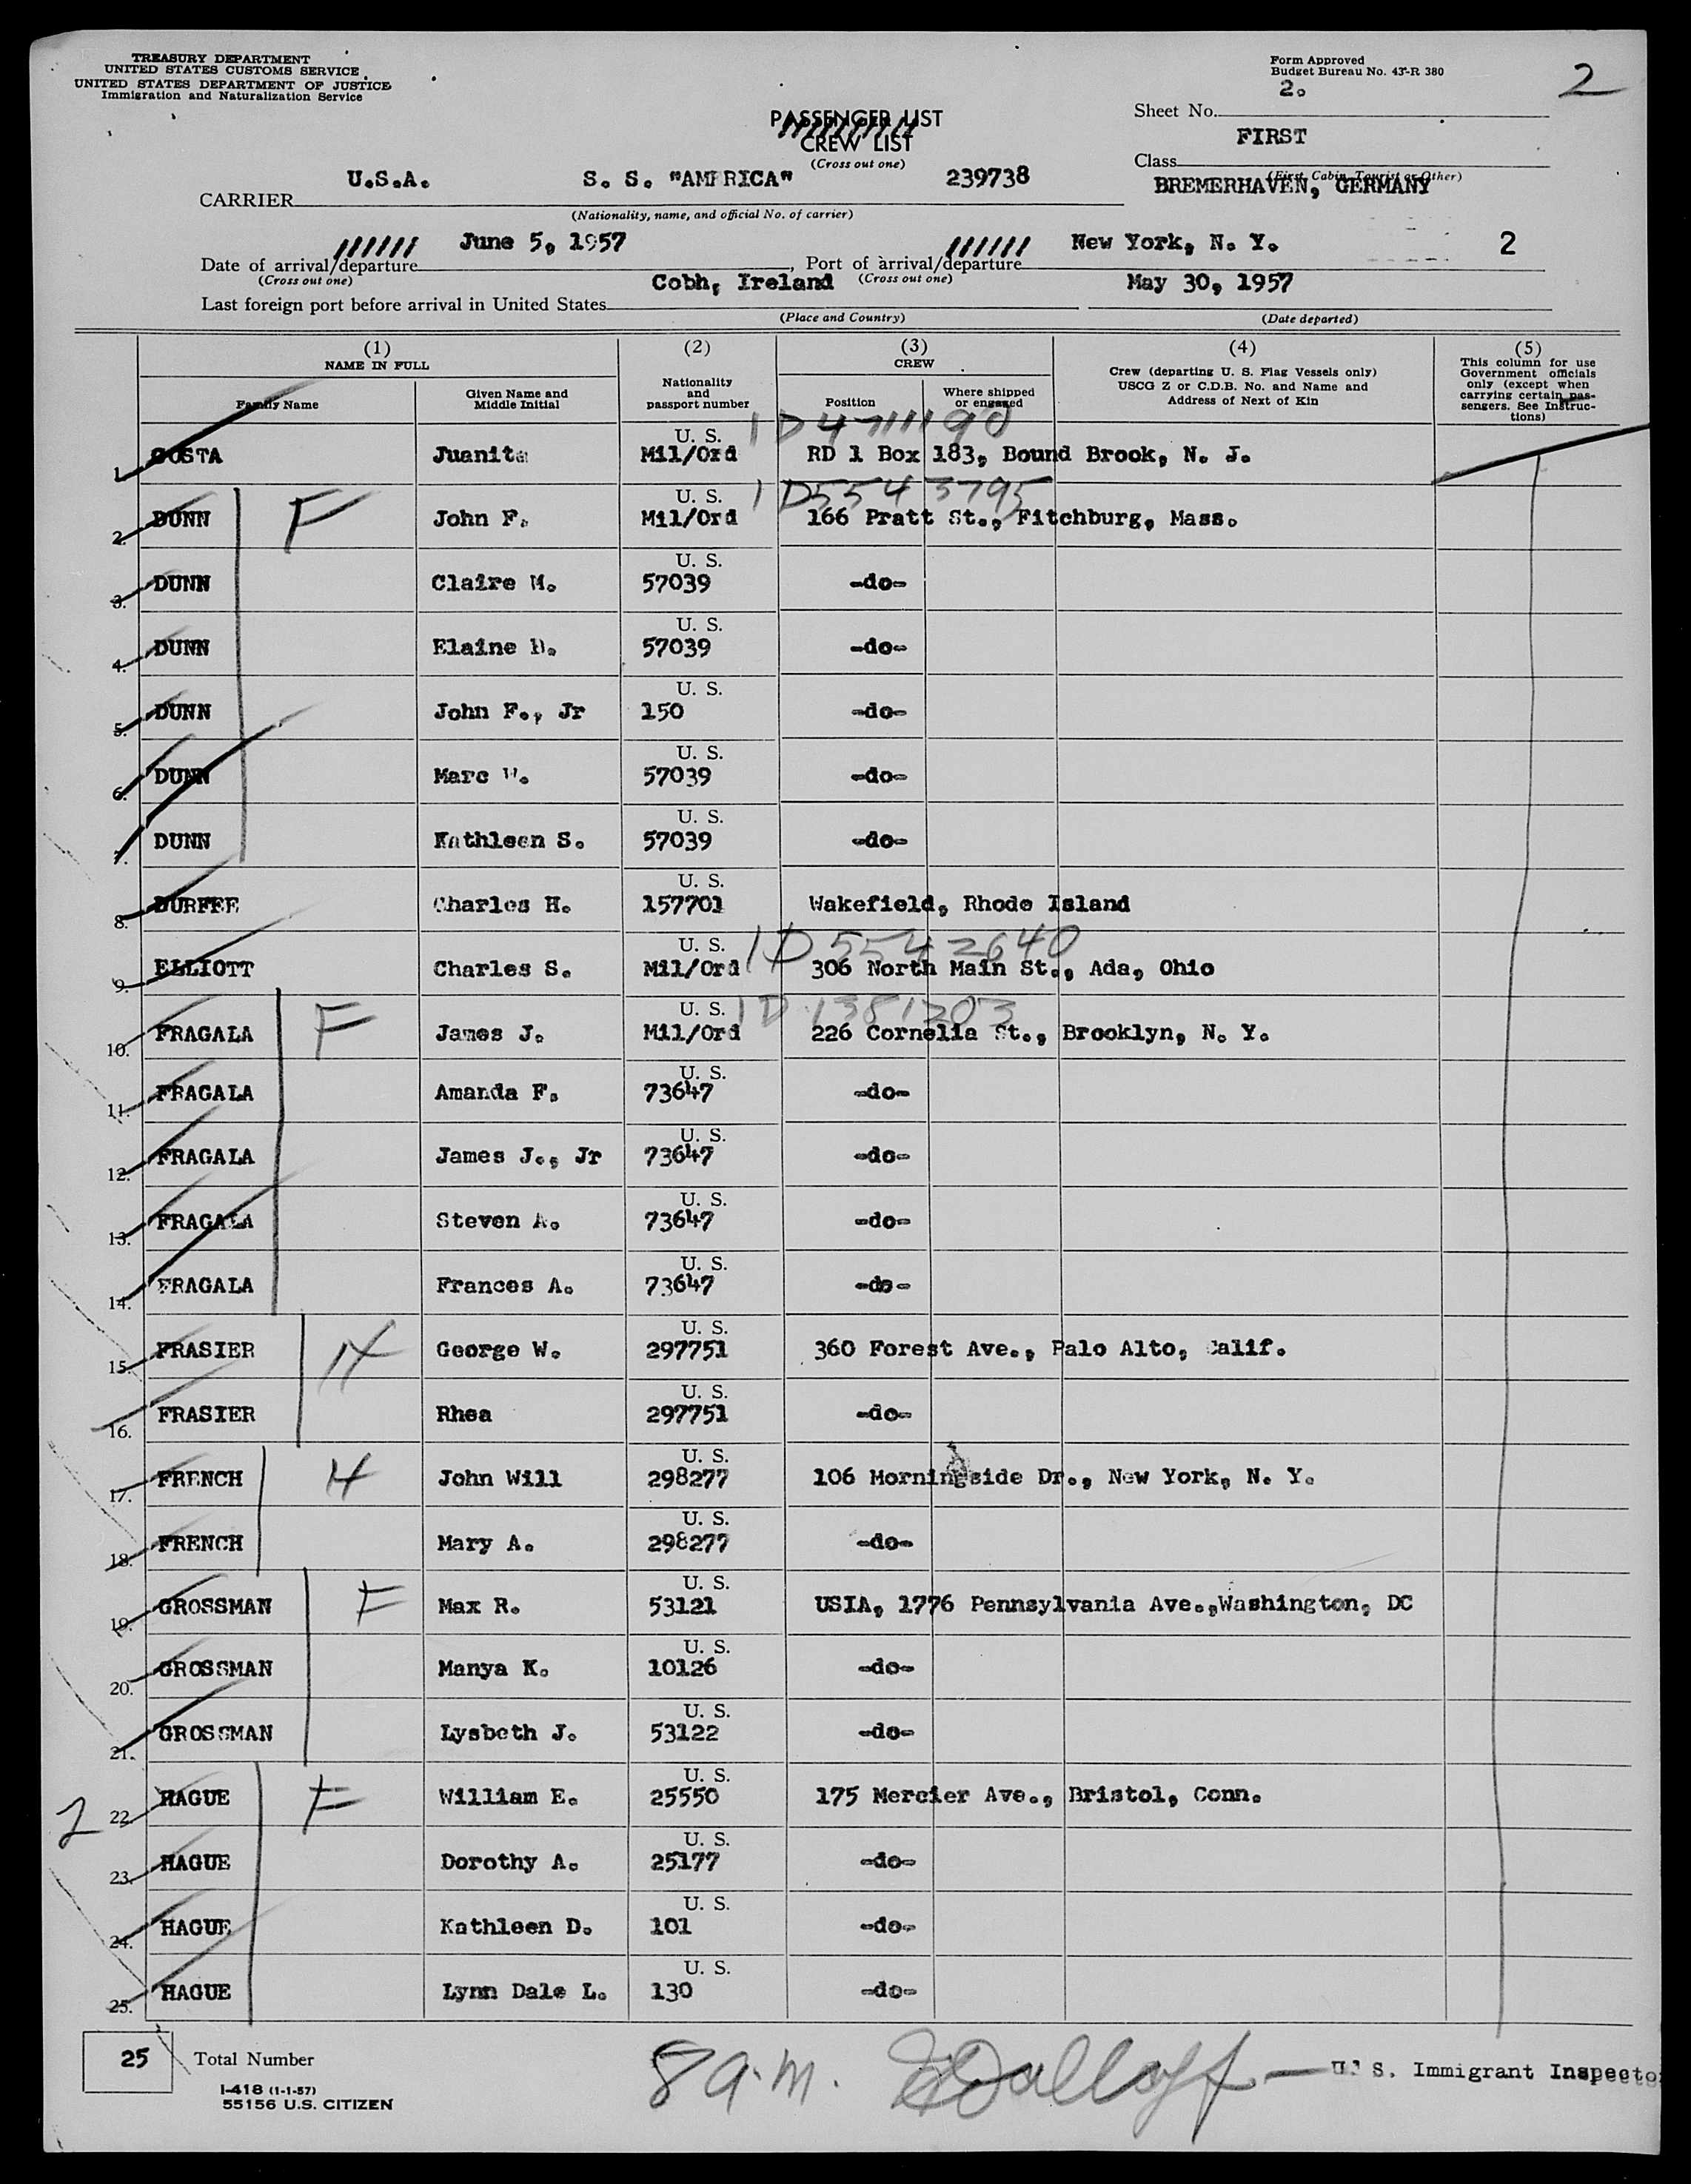 TREASURY DEPARTMENT
UNITED STATES CUSTOMS SERVICE
UNITED STATES DEPARTMENT OF JUSTICE
Immigration and Naturalization Service
Form Approved
Budget Bureau No. 43-R 380
2
PASSENGER LIST
CREW LIST
(Cross out one)
Sheet No. 2.
Class FIRST
(First, Cabin, Tourist or Other)
BREMERHAVEN, GERMANY
CARRIER U.S.A. S. S. "AMERICA" 239738
(Nationality, name, and official No. of carrier)
Date of arrival/departure June 5, 1957, Port of arrival/departure New York, N. Y. 2
(Cross out one) (Cross out one)
Last foreign port before arrival in United States Cobh, Ireland May 30, 1957
(Place and Country) (Date departed)
(1) NAME IN FULL
Family Name
Given Name and Middle Initial
(2) Nationality and passport number
(3) CREW
Position
Where shipped or engaged
(4) Crew (departing U. S. Flag Vessels only) USCG Z or C.D.B. No. and Name and Address of Next of Kin
(5) This column for use Government officials only (except when carrying certain passengers. See Instructions)
1. COSTA Juanita U. S. Mil/Ord RD 1 Box 183, Bound Brook, N. J.
2. DUNN F John F. U. S. Mil/Ord ID5543795 166 Pratt St., Fitchburg, Mass.
3. DUNN Claire M. U. S. 57039 -do-
4. DUNN Elaine U. S. 57039 -do-
5. DUNN John F., Jr U. S. 150 -do-
6. DUNN Marc U. S. 57039 -do-
7. DUNN Kathleen S. U. S. 57039 -do-
8. DURFEE Charles H. U. S. 157701 Wakefield, Rhode Island
9. ELLIOTT Charles S. U. S. Mil/Ord ID 5542640 306 North Main St., Ada, Ohio
10. FRAGALA F James J. U. S. Mil/Ord ID 1381203 226 Cornelia St., Brooklyn, N. Y.
11. FRAGALA Amanda F. U. S. 73647 -do-
12. FRAGALA James J., Jr U. S. 73647 -do-
13. FRAGALA Steven A. U. S. 73647 -do-
14. FRAGALA Frances A. U. S. 73647 -do-
15. FRASIER H George W. U. S. 297751 360 Forest Ave., Palo Alto, Calif.
16. FRASIER Rhea U. S. 297751 -do-
17. FRENCH H John Will U. S. 298277 106 Morningside Dr., New York, N. Y.
18. FRENCH Mary A. U. S. 298277 -do-
19. GROSSMAN F Max R. U. S. 53121 USIA, 1776 Pennsylvania Ave.,Washington, DC
20. GROSSMAN Manya K. U. S. 10126 -do-
21. GROSSMAN Lysbeth J. U. S. 53122 -do-
2 22. HAGUE F William E. U. S. 25550 175 Mercier Ave., Bristol, Conn.
23. HAGUE Dorothy A. U. S. 25177 -do-
24. HAGUE Kathleen D. U. S. 101 -do-
25. HAGUE Lynn Dale L. U. S. 130 -do-
25 Total Number
I-418 (1-1-57)
55156 U.S. CITIZEN
8 a.m.
U. S. Immigrant Inspector